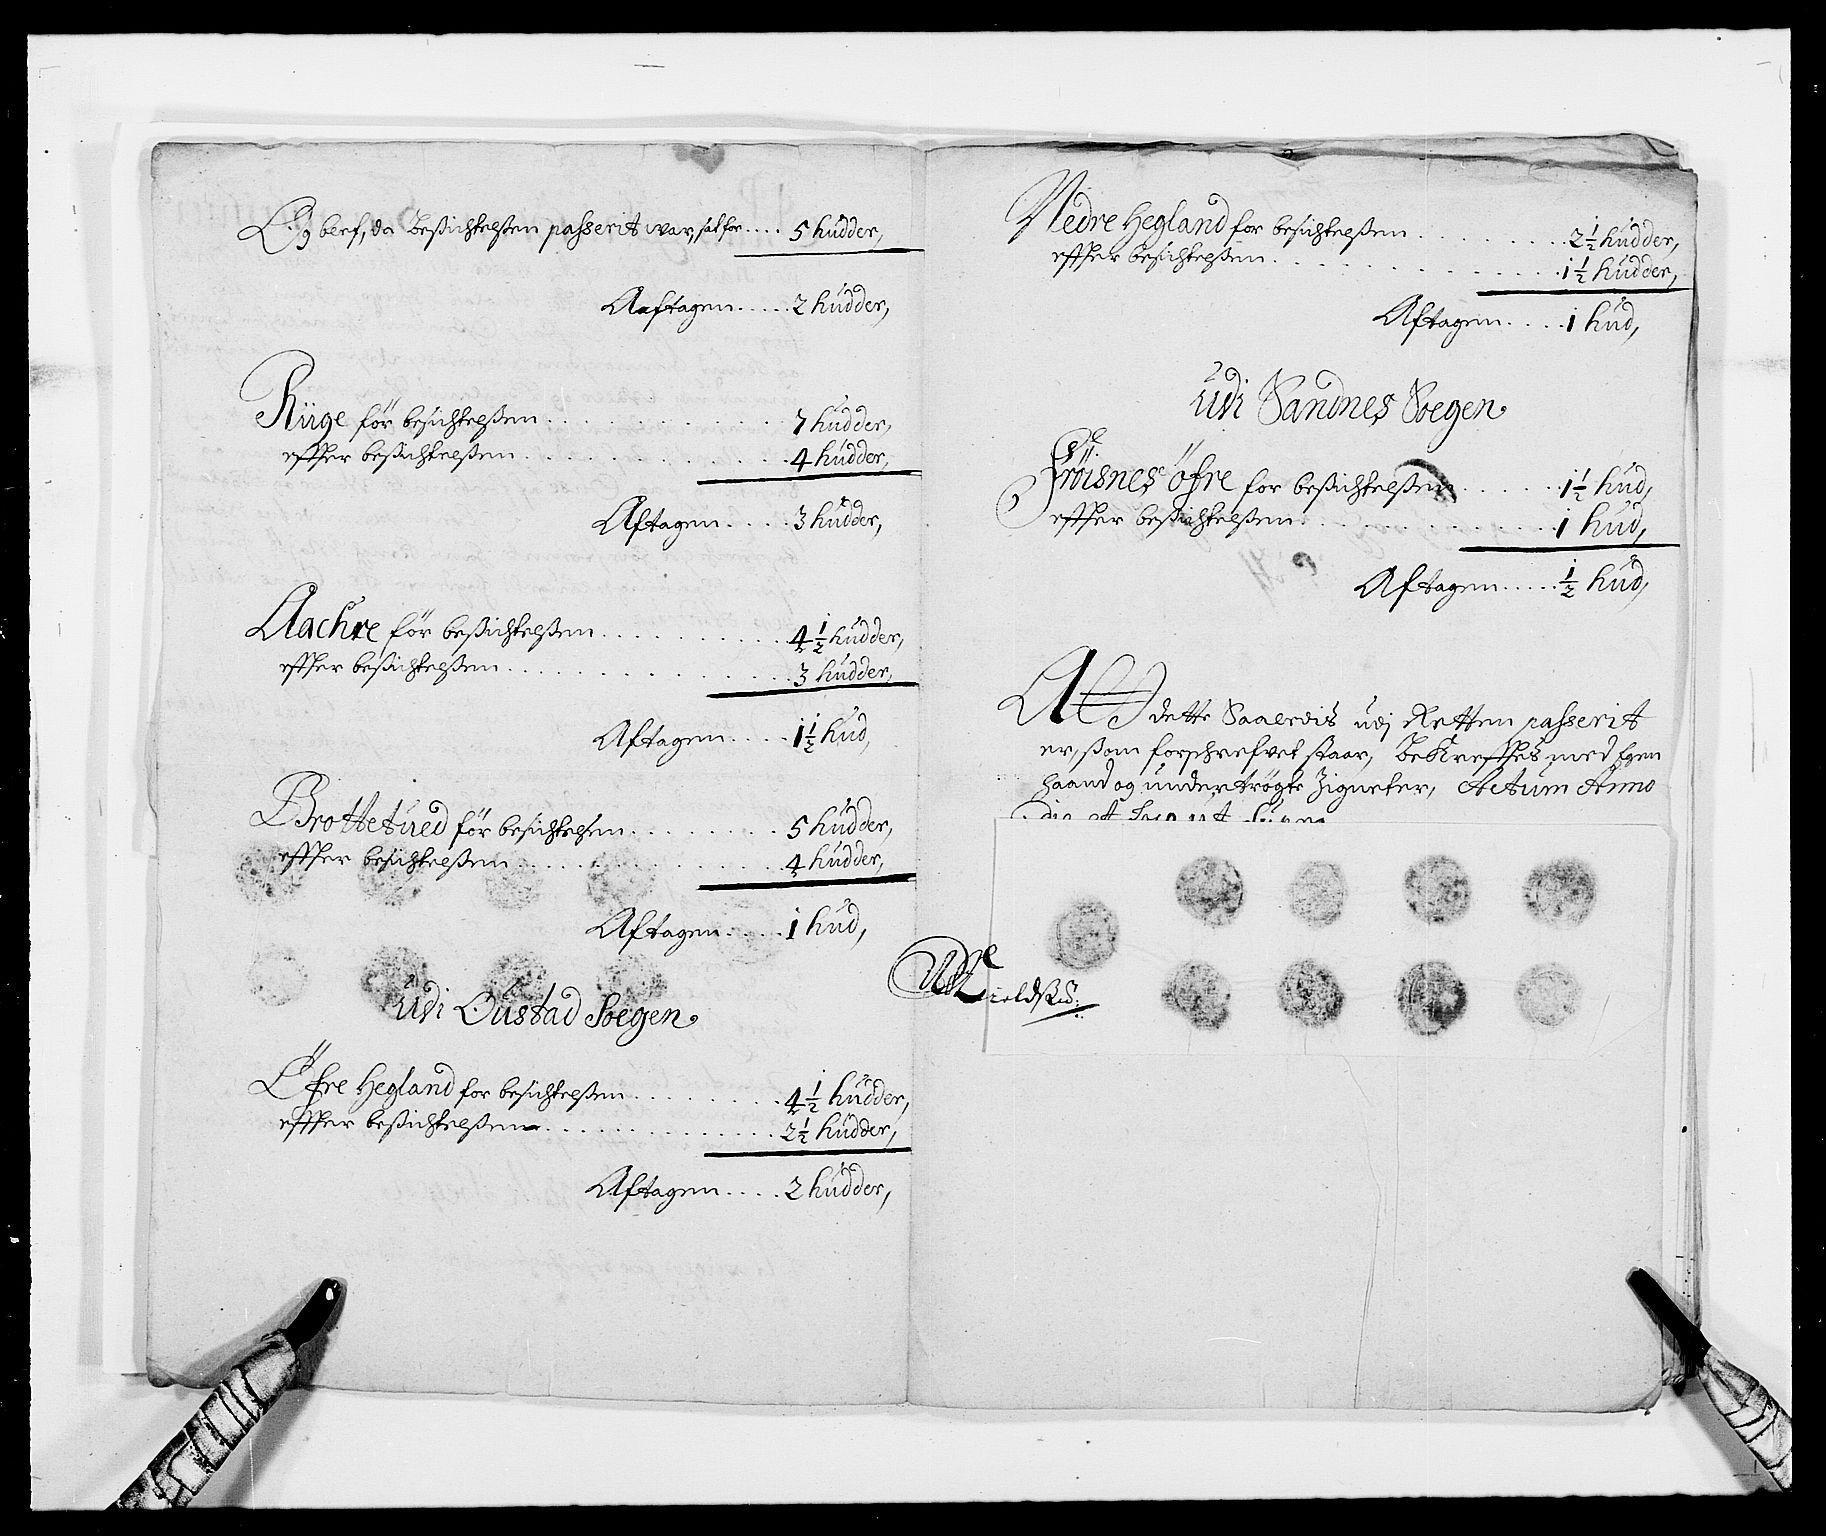 Og blef, da Besichtelsen passerit war, sat for.... 5 hudder,
Aaftagen..... 2 hudder,
Riige för besichtelsen............ 7 hudder,
effter besichtelsen............ 4 hudder,
Aftagen.... 3 hudder,
Aachre för besichtelsen.......... 4 1/2 hudder,
effter besichtelsen.............. 3 hudder,
Aftagen.... 1 1/2 hud,
Brottetued för besichtelsen........ 5 hudder,
effter besichtelsen.............. 4 hudder,
Aftagen..... 1 hud,
Udi Oustad Sogen
Öfre Hegland for besichtelsen........ 4 1/2 hudder,
effter besichtelsen.............. 2 1/2 hudder,
Aftagen.... 2 hudder,
Nedre Hegland for besichtelsen......... 2 1/2 hudder,
effter besichtelsen.............. 1 1/2 hudder,
Aftagen.... 1 hud,
Udi Sandnes Sogen
Fröisnes öfre for besichtelsen...... 1 1/2 hud,
effter besichtelsen............. 1 hud,
Aftagen..... 1/2 hud,
Att dette Saaledis udj Retten passerit
er, som forschrefvet staar, Bekrefftes med Egen
haand og undertrögte Zigneter, Actum Anno
die et loco ut supra